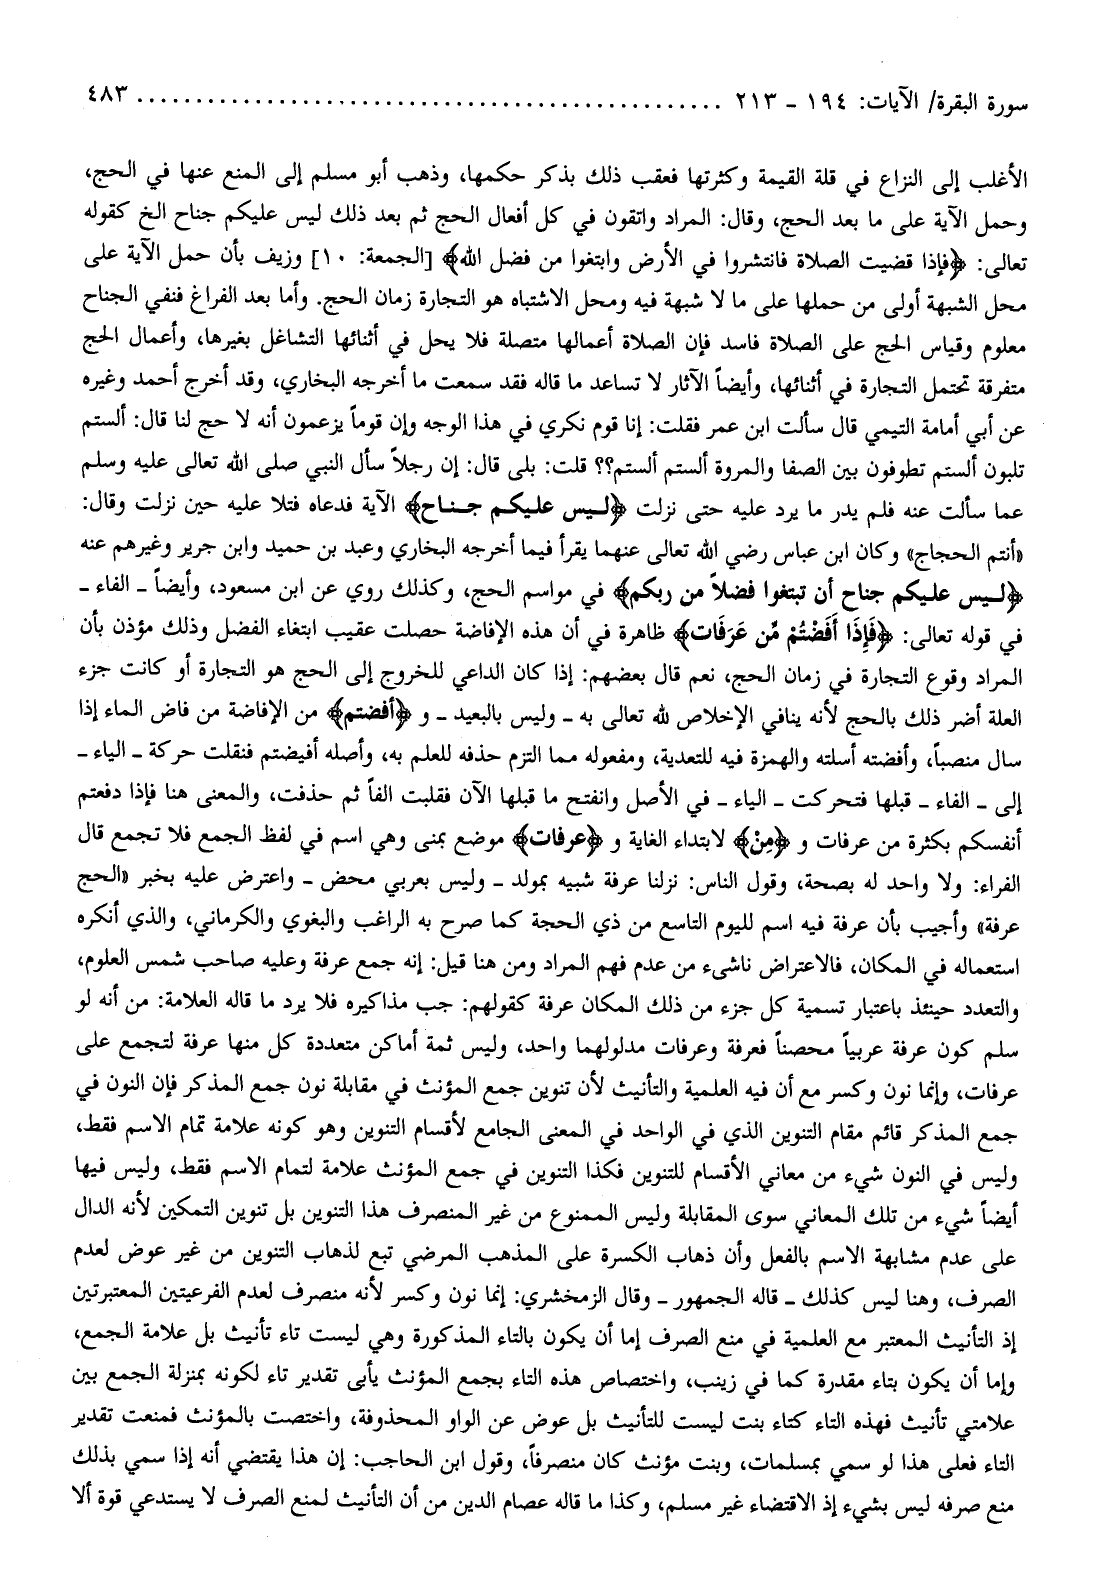 سورة البقرة/ الآيات: ١٩٤ - ٢١٣ ................................................ ٤٨٣
الأغلب إلى النزاع في قلة القيمة وكثرتها فعقب ذلك بذكر حكمها، وذهب أبو مسلم إلى المنع عنها في الحج،
وحمل الآية على ما بعد الحج، وقال: المراد واتقون في كل أفعال الحج ثم بعد ذلك ليس عليكم جناح الخ كقوله
تعالى: ﴿فإذا قضيت الصلاة فانتشروا في الأرض وابتغوا من فضل الله﴾ [الجمعة: ١٠] وزيف بأن حمل الآية على
محل الشبهة أولى من حملها على ما لا شبهة فيه ومحل الاشتباه هو التجارة زمان الحج. وأما بعد الفراغ فنفي الجناح
معلوم وقياس الحج على الصلاة فاسد فإن الصلاة أعمالها متصلة فلا يحل في أثنائها التشاغل بغيرها، وأعمال الحج
متفرقة تحتمل التجارة في أثنائها، وأيضاً الآثار لا تساعد ما قاله فقد سمعت ما أخرجه البخاري، وقد أخرج أحمد وغيره
عن أبي أمامة التيمي قال سألت ابن عمر فقلت: إنا قوم نكري في هذا الوجه وإن قوماً يزعمون أنه لا حج لنا قال: ألستم
تلبون ألستم تطوفون بين الصفا والمروة ألستم ألستم؟؟ قلت: بلى قال: إن رجلاً سأل النبي صلى الله تعالى عليه وسلم
عما سألت عنه فلم يدر ما يرد عليه حتى نزلت ﴿لـيس عليكم جـناح﴾ الآية فدعاه فتلا عليه حين نزلت وقال:
«أنتم الحجاج» وكان ابن عباس رضي الله تعالى عنهما يقرأ فيما أخرجه البخاري وعبد بن حميد وابن جرير وغيرهم عنه
﴿لـيس عليكم جناح أن تبتغوا فضلاً من ربكم﴾ في مواسم الحج، وكذلك روي عن ابن مسعود، وأيضاً ـ الفاء ـ
في قوله تعالى: ﴿فَإِذَا أَفَضْتُمْ مِّن عَرَفَات﴾ ظاهرة في أن هذه الإفاضة حصلت عقيب ابتغاء الفضل وذلك مؤذن بأن
المراد وقوع التجارة في زمان الحج، نعم قال بعضهم: إذا كان الداعي للخروج إلى الحج هو التجارة أو كانت جزء
العلة أضر ذلك بالحج لأنه ينافي الإخلاص لله تعالى به ـ وليس بالبعيد ـ و ﴿أفضتم﴾ من الإفاضة من فاض الماء إذا
سال منصباً، وأفضته أسلته والهمزة فيه للتعدية، ومفعوله مما التزم حذفه للعلم به، وأصله أفيضتم فنقلت حركة ـ الياء ـ
إلى ـ الفاء ـ قبلها فتحركت ـ الياء ـ في الأصل وانفتح ما قبلها الآن فقلبت الفاً ثم حذفت، والمعنى هنا فإذا دفعتم
أنفسكم بكثرة من عرفات و ﴿مِنْ﴾ لابتداء الغاية و ﴿عرفات﴾ موضع بمنى وهي اسم في لفظ الجمع فلا تجمع قال
الفراء: ولا واحد له بصحة، وقول الناس: نزلنا عرفة شبيه بمولد ـ وليس بعربي محض ـ واعترض عليه بخبر «الحج
عرفة» وأجيب بأن عرفة فيه اسم لليوم التاسع من ذي الحجة كما صرح به الراغب والبغوي والكرماني، والذي أنكره
استعماله في المكان، فالاعتراض ناشىء من عدم فهم المراد ومن هنا قيل: إنه جمع عرفة وعليه صاحب شمس العلوم،
والتعدد حينئذ باعتبار تسمية كل جزء من ذلك المكان عرفة كقولهم: جب مذاكيره فلا يرد ما قاله العلامة: من أنه لو
سلم كون عرفة عربياً محصناً فعرفة وعرفات مدلولهما واحد، وليس ثمة أماكن متعددة كل منها عرفة لتجمع على
عرفات، وإنما نون وكسر مع أن فيه العلمية والتأنيث لأن تنوين جمع المؤنث في مقابلة نون جمع المذكر فإن النون في
جمع المذكر قائم مقام التنوين الذي في الواحد في المعنى الجامع لأقسام التنوين وهو كونه علامة تمام الاسم فقط،
وليس في النون شيء من معاني الأقسام للتنوين فكذا التنوين في جمع المؤنث علامة لتمام الاسم فقط، وليس فيها
أيضاً شيء من تلك المعاني سوى المقابلة وليس الممنوع من غير المنصرف هذا التنوين بل تنوين التمكين لأنه الدال
على عدم مشابهة الاسم بالفعل وأن ذهاب الكسرة على المذهب المرضي تبع لذهاب التنوين من غير عوض لعدم
الصرف، وهنا ليس كذلك ـ قاله الجمهور ـ وقال الزمخشري: إنما نون وكسر لأنه منصرف لعدم الفرعيتين المعتبرتين
إذ التأنيث المعتبر مع العلمية في منع الصرف إما أن يكون بالتاء المذكورة وهي ليست تاء تأنيث بل علامة الجمع،
وإما أن يكون بتاء مقدرة كما في زينب، واختصاص هذه التاء بجمع المؤنث يأبى تقدير تاء لكونه بمنزلة الجمع بين
علامتي تأنيث فهذه التاء كتاء بنت ليست للتأنيث بل عوض عن الواو المحذوفة، واختصت بالمؤنث فمنعت تقدير
التاء فعلى هذا لو سمي بمسلمات، وبنت مؤنث كان منصرفاً، وقول ابن الحاجب: إن هذا يقتضي أنه إذا سمي بذلك
منع صرفه ليس بشيء إذ الاقتضاء غير مسلم، وكذا ما قاله عصام الدين من أن التأنيث لمنع الصرف لا يستدعي قوة ألا